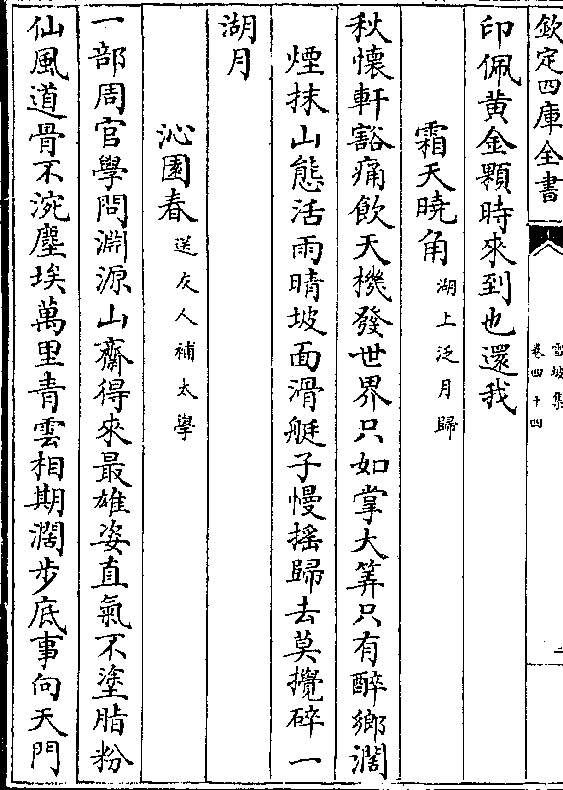 欽定四庫全書
雪坡集
卷四十四
二
印佩黄金顆時來到也還我
霜天曉角湖上泛月歸
秋懷軒豁痛飲天機發世界只如掌大筭只有醉鄉濶
煙抹山態活雨晴坡面滑艇子慢摇歸去莫攪碎一
湖月
沁園春送友人補太學
一部周官學問淵源山齋得來最雄姿直氣不塗脂粉
仙風道骨不涴塵埃萬里青雲相期濶步底事向天門